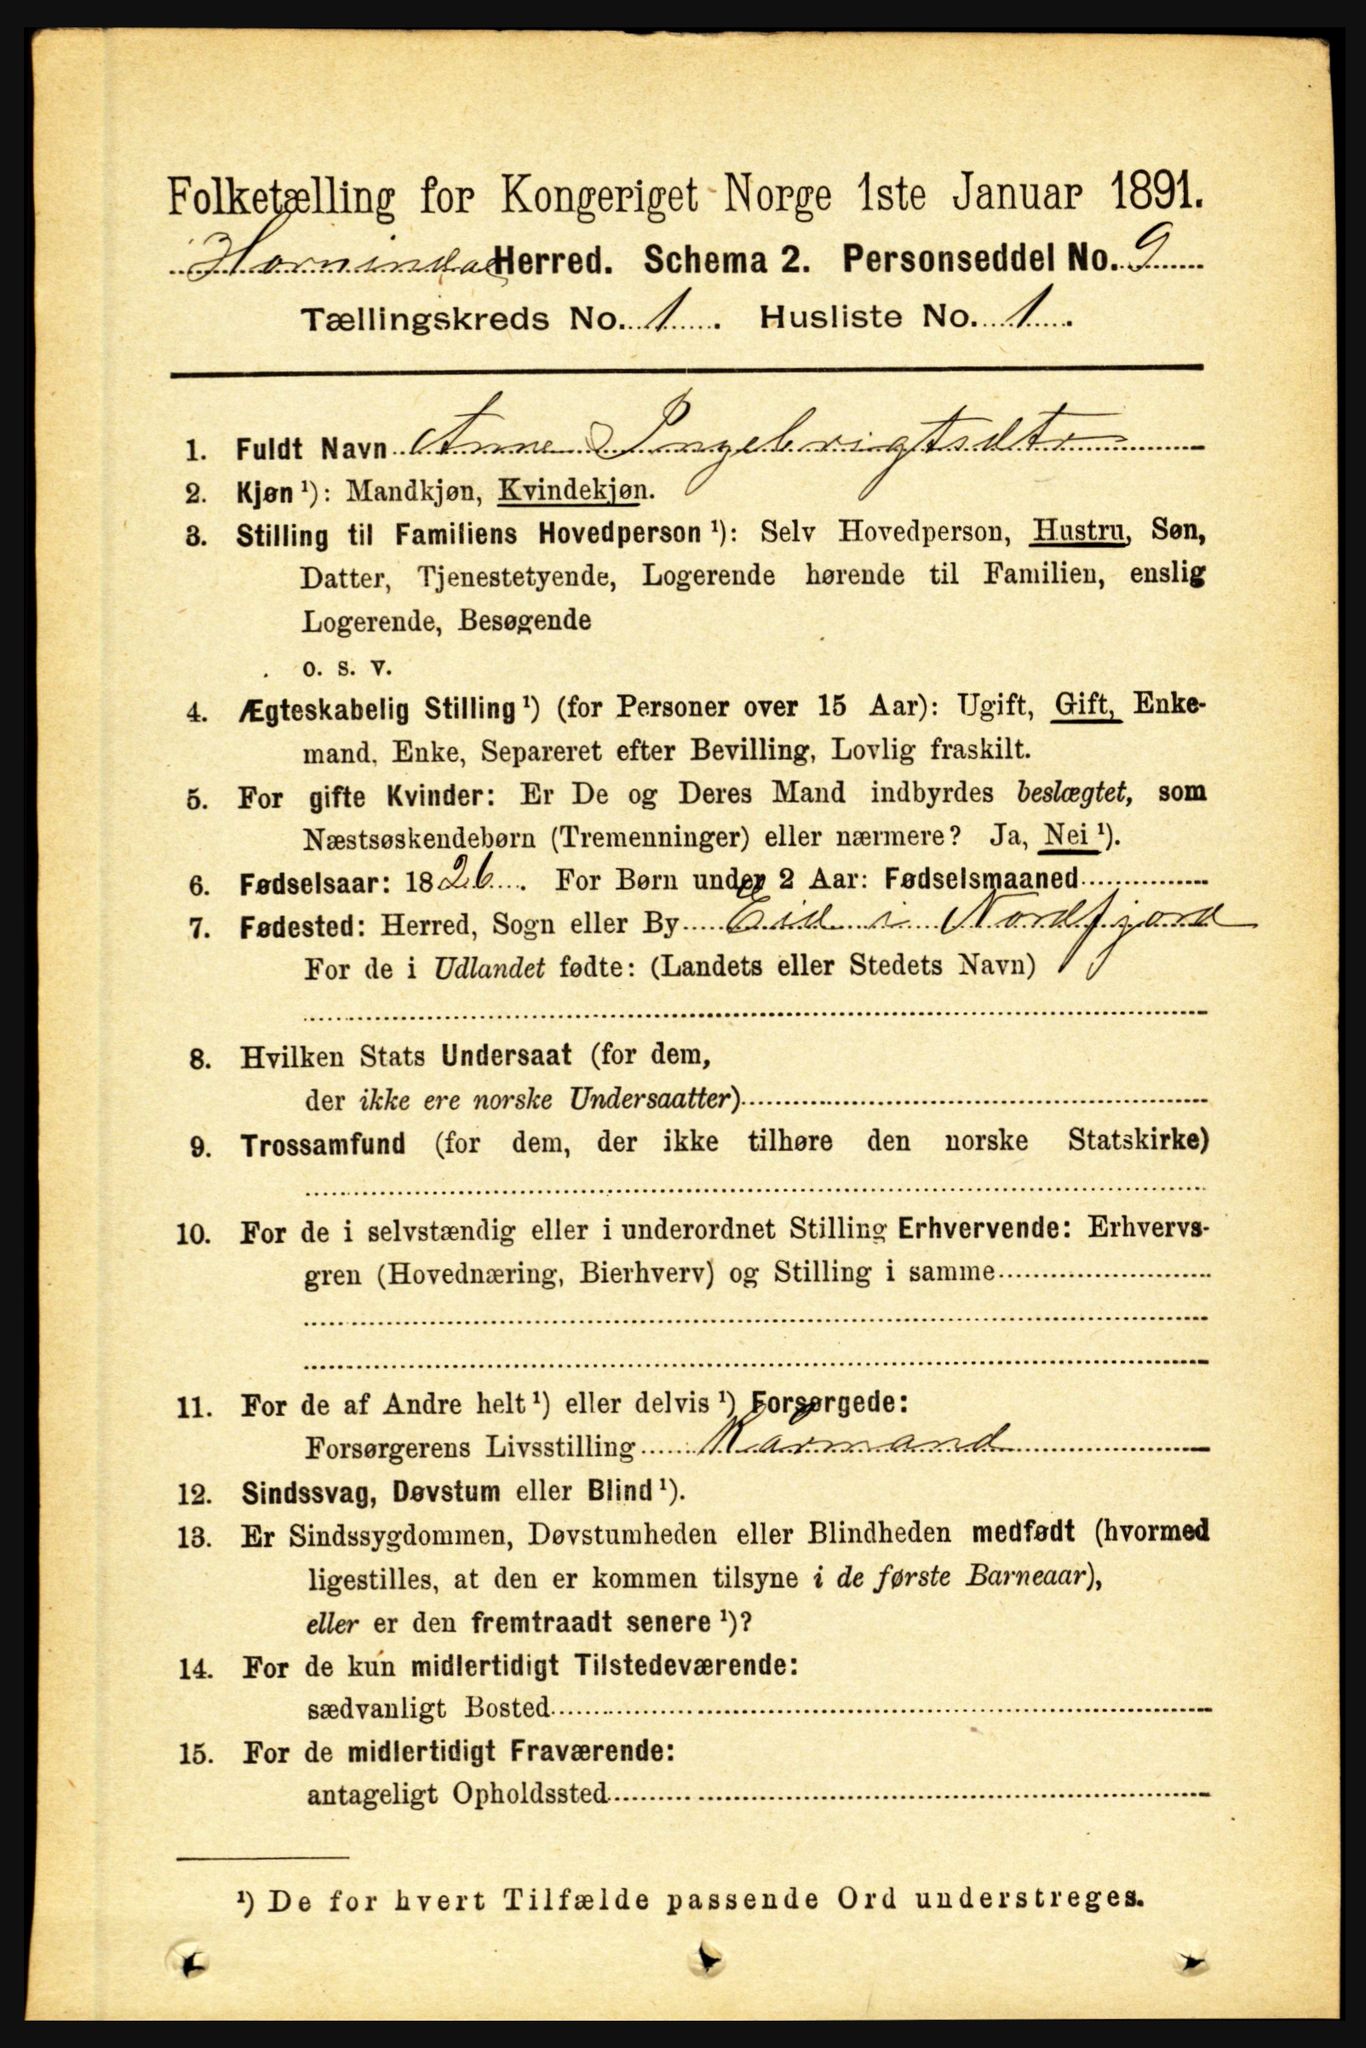 Folketælling for Kongeriget Norge 1ste Januar 1891.
Hornindal Herred. Schema 2. Personseddel No. 9
Tællingskreds No. 1. Husliste No. 1.
1. Fuldt Navn Anne Ingebrigtsdtr
2. Kjøn ¹): Mandkjøn, Kvindekjøn.
3. Stilling til Familiens Hovedperson ¹): Selv Hovedperson, Hustru, Søn,
Datter, Tjenestetyende, Logerende hørende til Familien, enslig
Logerende, Besøgende
o. s. v.
4. Ægteskabelig Stilling ¹) (for Personer over 15 Aar): Ugift, Gift, Enke-
mand, Enke, Separeret efter Bevilling, Lovlig fraskilt.
5. For gifte Kvinder: Er De og Deres Mand indbyrdes beslægtet, som
Næstsøskendebørn (Tremenninger) eller nærmere? Ja, Nei ¹).
6. Fødselsaar: 1826. For Børn under 2 Aar: Fødselsmaaned
7. Fødested: Herred, Sogn eller By Eid i Nordfjord
For de i Udlandet fødte: (Landets eller Stedets Navn)
8. Hvilken Stats Undersaat (for dem,
der ikke ere norske Undersaatter)
9. Trossamfund (for dem, der ikke tilhøre den norske Statskirke)
10. For de i selvstændig eller i underordnet Stilling Erhvervende: Erhvervs-
gren (Hovednæring, Bierhverv) og Stilling i samme
11. For de af Andre helt ¹) eller delvis ¹) Forsørgede:
Forsørgerens Livsstilling Kårmand
12. Sindssvag, Døvstum eller Blind ¹).
13. Er Sindssygdommen, Døvstumheden eller Blindheden medfødt (hvormed
ligestilles, at den er kommen tilsyne i de første Barneaar),
eller er den fremtraadt senere ¹)?
14. For de kun midlertidigt Tilstedeværende:
sædvanligt Bosted
15. For de midlertidigt Fraværende:
antageligt Opholdssted
¹) De for hvert Tilfælde passende Ord understreges.